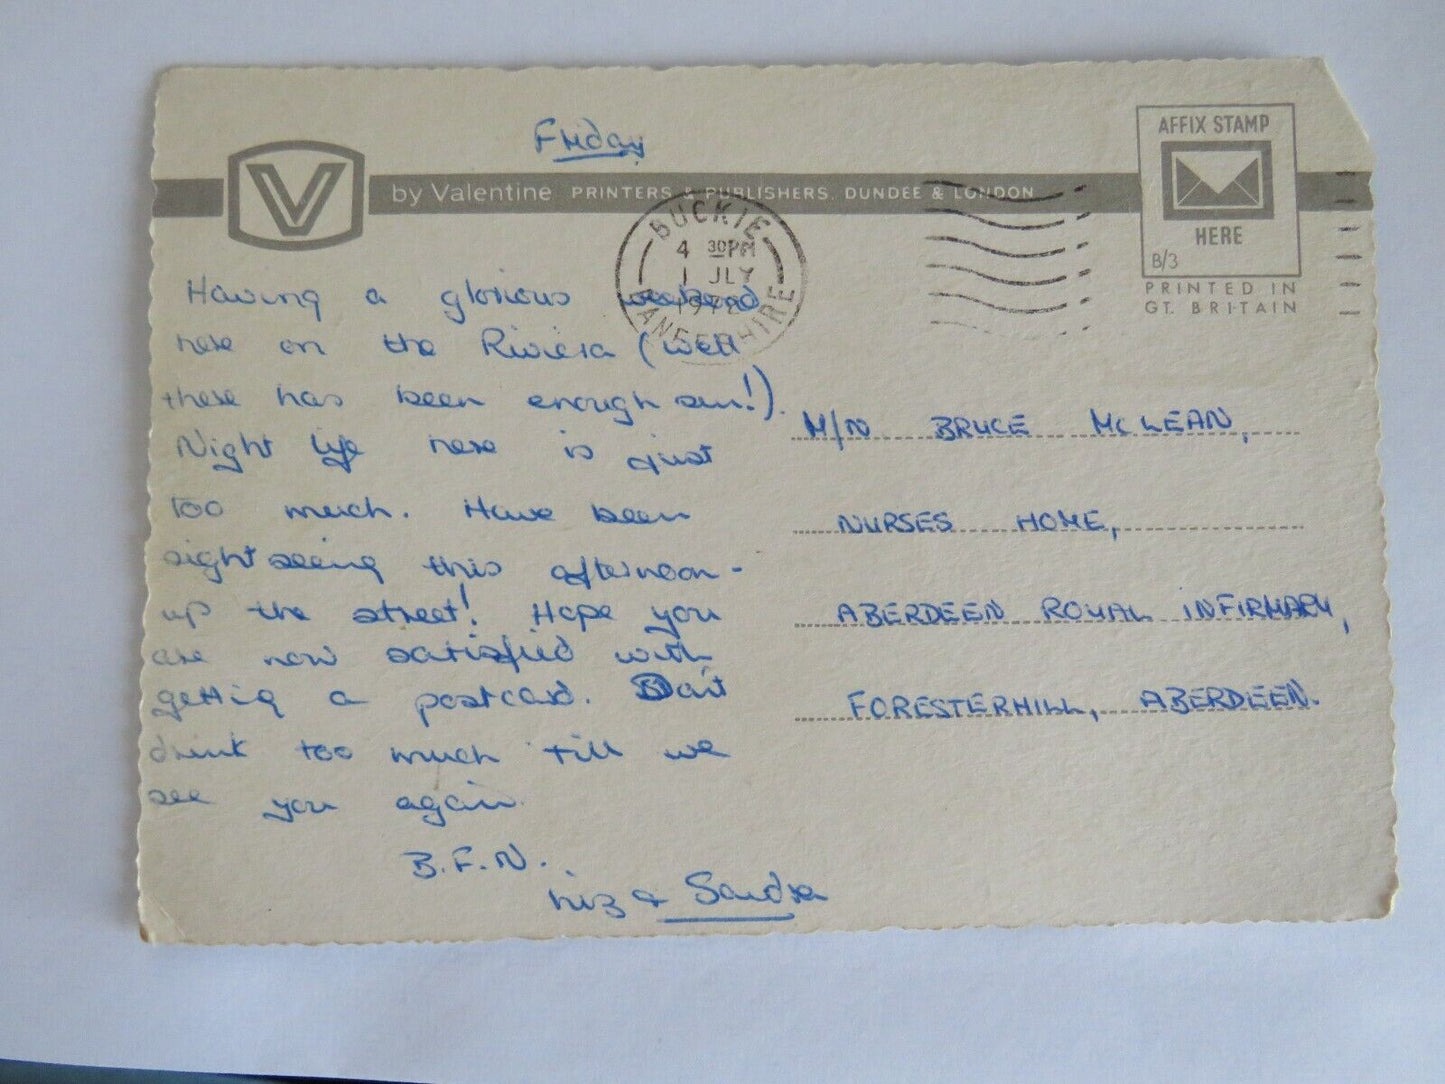 Friday
V
by Valentine PRINTERS & PUBLISHERS, DUNDEE & LONDON
AFFIX STAMP
HERE
B/3
PRINTED IN
GT. BRITAIN
BUCKIE
4 30PM
1 JLY
1972
BANFFSHIRE
Having a glorious weekend
here on the Riviera (well
there has been enough sun!).
Night life here is just
too much. Have been
sightseeing this afternoon -
up the street! Hope you
are now satisfied with
getting a postcard. Don't
drink too much till we
see you again.
B.F.N.
Liz & Sandra
M/N BRUCE McLEAN,
NURSES HOME,
ABERDEEN ROYAL INFIRMARY,
FORESTERHILL, ABERDEEN.